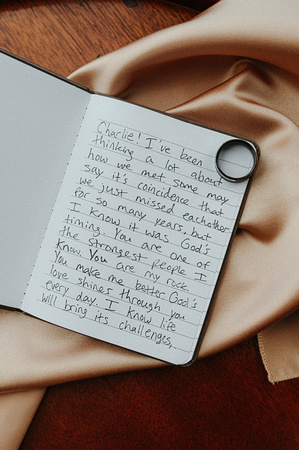 Charlie! I've been
thinking a lot about
how we met some may
say it's coincidence that
we just missed eachother
for so many years, but
I know it was God's
timing. You are one of
the strongest people I
know. You are my rock.
You make me better God's
love shines through you
every day. I know life
will bring its challenges,